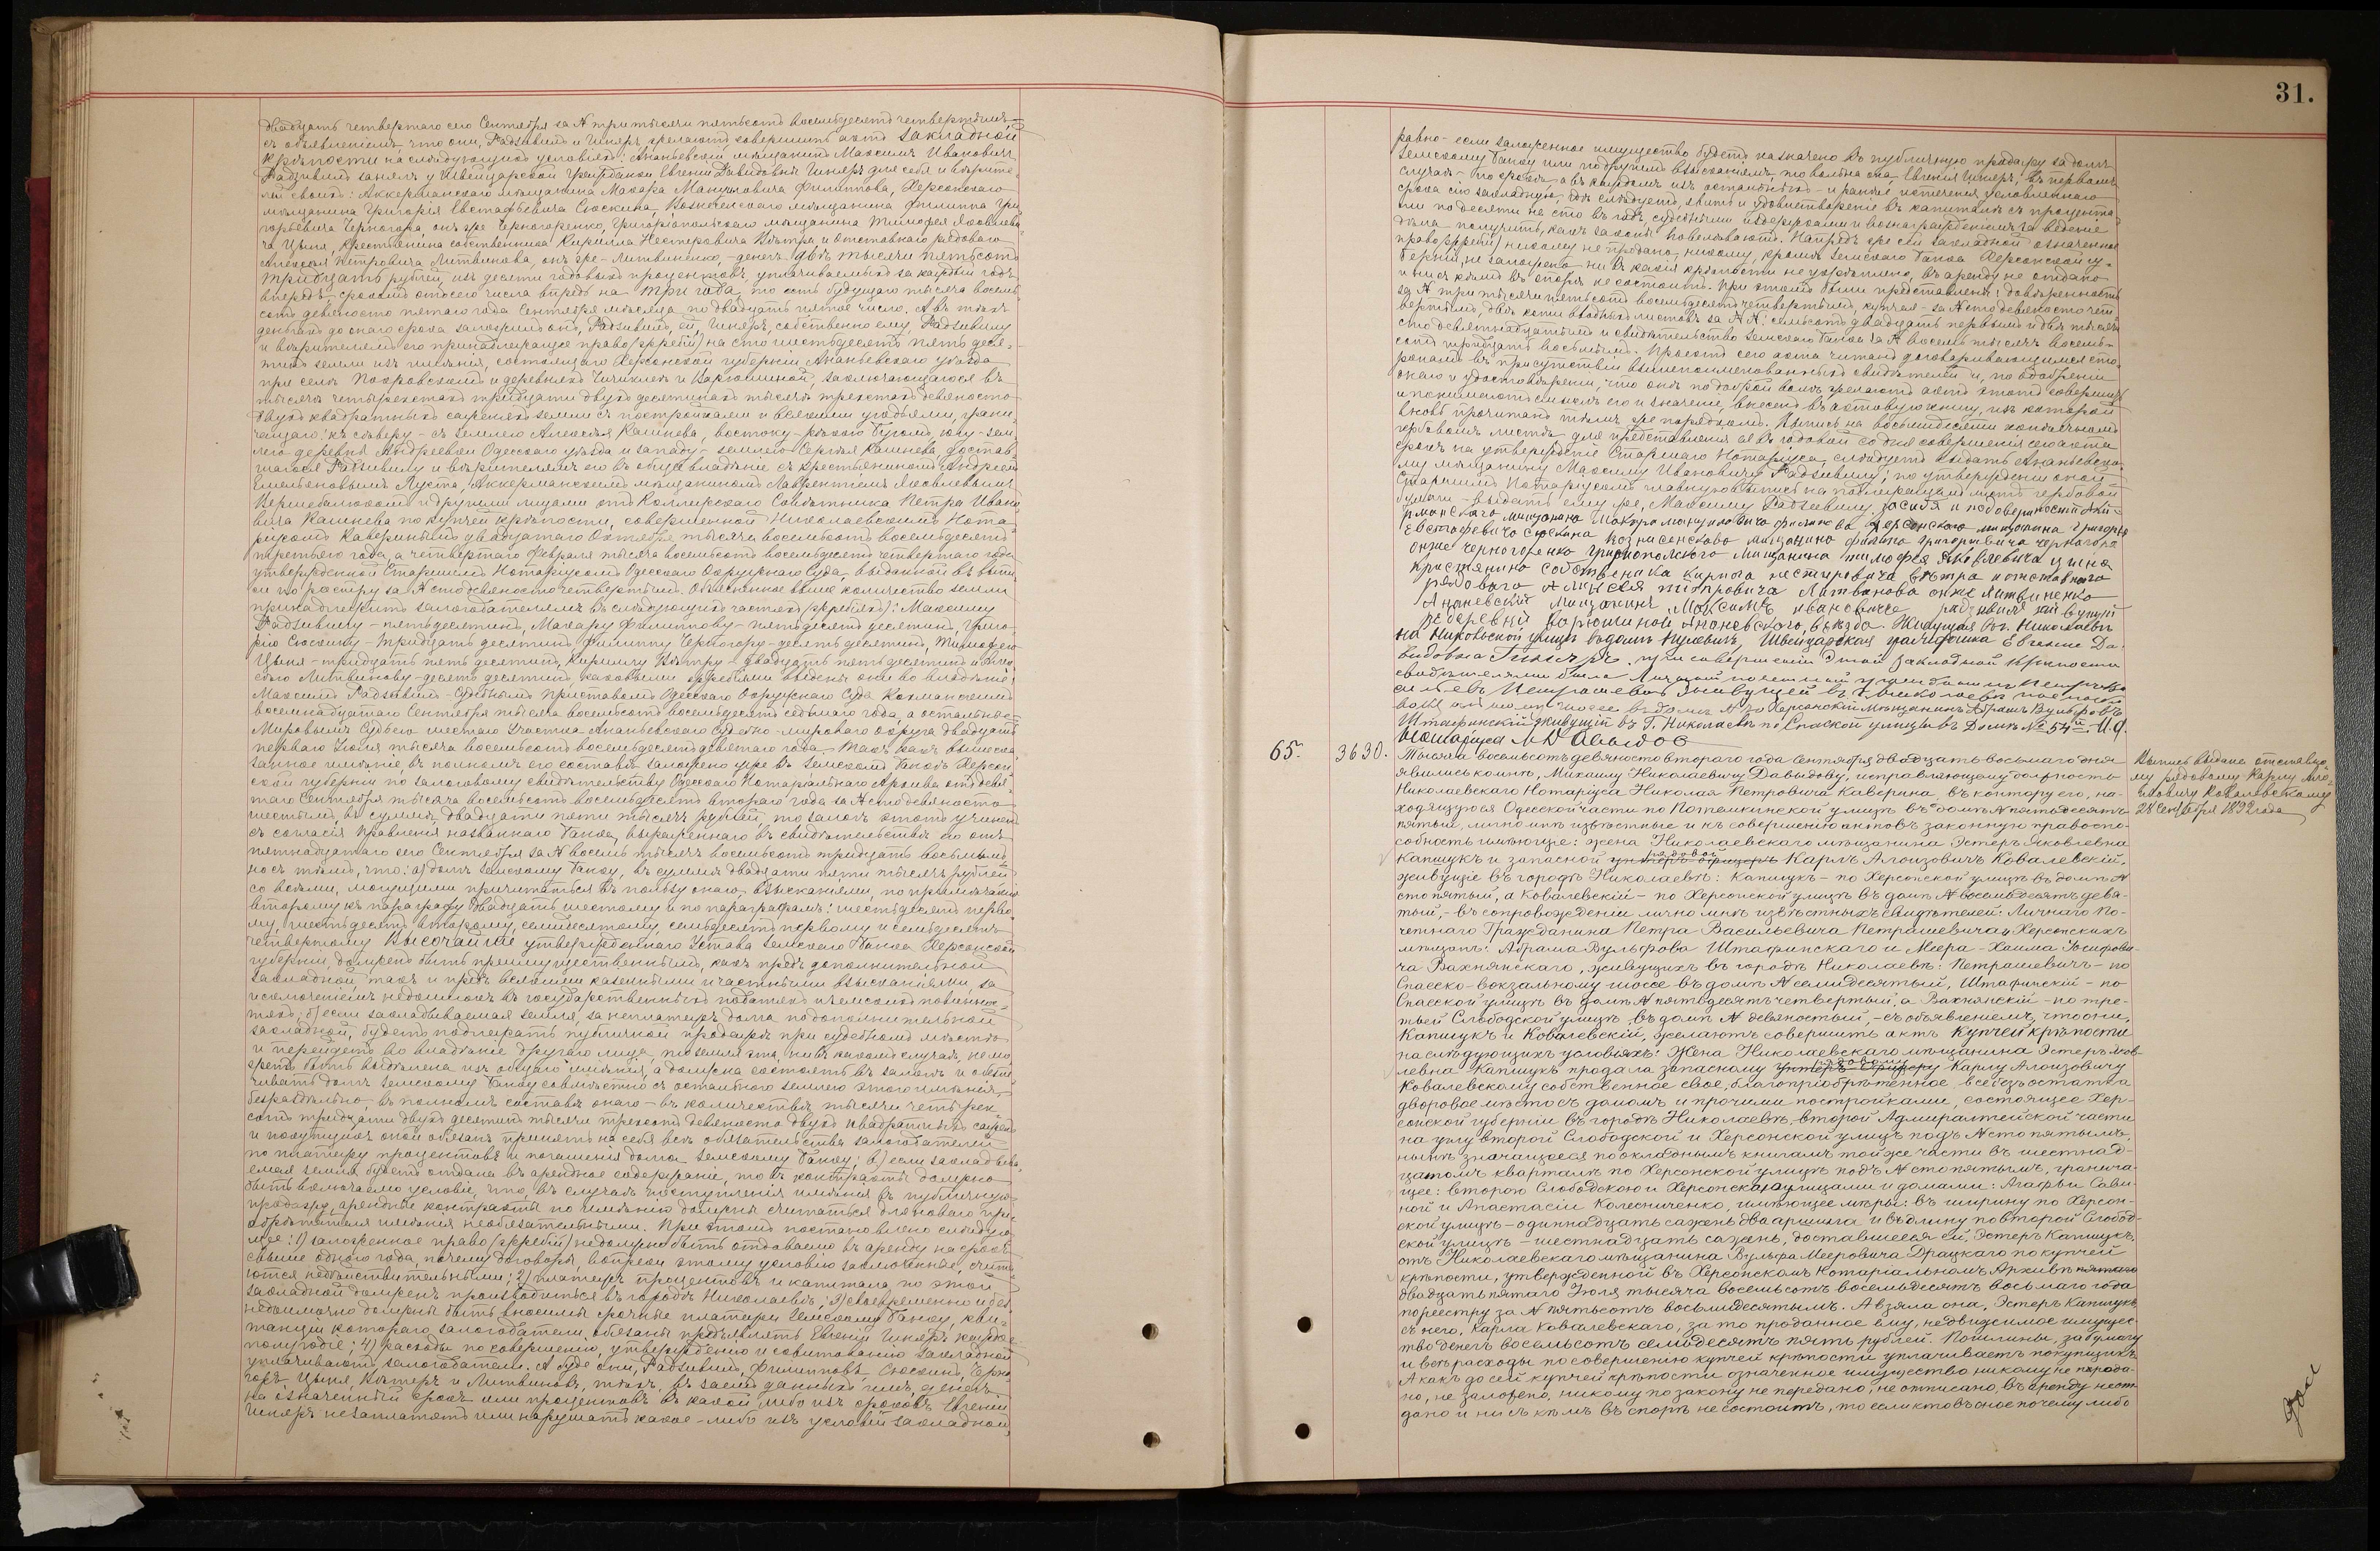 двадцать четвертаго сего Сентября за N три тысячи пятьсотъ восемьдесятъ четвертымъ,–
съ объявленіемъ, что они, Радзивилъ и Инеръ, желаютъ совершить актъ закладной
крѣпости на слѣдующихъ условіяхъ: Ананьевскій мѣщанинъ Максимъ Ивановичъ
Радзивилъ занялъ у Швейцарской гражданки Евгеніи Давидовны Инеръ для себя и вѣрите-
лей своихъ: Аккерманскаго мѣщанина Макара Мануиловича Филиппова, Херсонскаго
мѣщанина Григорія Евстафьевича Сюскина, Вознесенскаго мѣщанина Филиппа Гри-
горьевича Черногора, онъ же Черногоренко, Григоріопольскаго мѣщанина Тимофея Яковлеви-
ча Цыня, крестьянина собственника Кирилла Нестеровича Вѣтра и отставнаго рядоваго
Алексѣя Петровича Литвинова, онъ же – Литвиненко, – денегъ двѣ тысячи пятьсотъ
тридцать рублей, изъ десяти годовыхъ процентовъ, уплачиваемыхъ за каждый годъ
впередъ, срокомъ отъ сего числа впредь на три года, то есть будущаго тысяча восемь-
сотъ девяносто пятаго года Сентября мѣсяца по двадцать пятое число. А въ тѣхъ
деньгахъ до онаго срока заложилъ онъ, Радзивилъ, ей, Инеръ, собственно ему, Радзивилу
и вѣрителямъ его принадлежащее право (жребій) на сто шестьдесятъ пять деся-
тинъ земли изъ имѣнія, состоящаго Херсонской губерніи Ананьевскаго уѣзда
при селѣ Покровскомъ и деревняхъ Чичиклеѣ и Варюшиной, заключающагося въ
тысячѣ четырехстахъ тридцати двухъ десятинахъ тысячѣ трехстахъ девяносто
двухъ квадратныхъ саженяхъ земли съ постройками и всякими угодьями, грани-
чащаго: къ сѣверу – съ землею Алексѣя Камнева, востоку – рѣкою Бугомъ, югу – зем-
лею деревни Андреевки Одесскаго уѣзда и западу – землею Сергѣя Камнева, достав-
шагося Радзивилу и вѣрителямъ его въ общее владѣніе съ крестьяниномъ Андреемъ
Емельяновымъ Луста, Аккерманскимъ мѣщаниномъ Лаврентіемъ Яковлевымъ
и другими лицами отъ Коллежскаго Совѣтника Петра Ивано-
вича Камнева по купчей крѣпости, совершенной Николаевскимъ Нота-
ріусомъ Каверинымъ двадцатаго Октября тысяча восемьсотъ восемьдесятъ
третьяго года, а четвертаго Февраля тысяча восемьсотъ восемьдесятъ четвертаго года
утвержденной Старшимъ Нотаріусомъ Одесскаго Окружнаго Суда, выданной въ выпи-
си по реестру за N сто девяносто четвертымъ. Объясненное выше количество земли
принадлежитъ залогодателямъ въ слѣдующихъ частяхъ (жребіяхъ): Максиму
Радзивилу – пять десятинъ, Макару Филиппову – пятьдесятъ десятинъ, Григо-
рію Сюскину – тридцать десятинъ, Филиппу Черногору – десять десятинъ, Тимофею
Цыня – тридцать пять десятинъ, Кириллу Вѣтру – двадцать пять десятинъ и Алек-
сѣю Литвинову – десять десятинъ, каковыми жребіями введены они во владѣніе:
Максимъ Радзивилъ – Судебнымъ Приставомъ Одесскаго Окружнаго Суда
восемнадцатаго Сентября тысяча восемьсотъ восемьдесятъ седьмаго года, а остальные –
Мировымъ Судьею шестаго Участка Ананьевскаго Судебно-мироваго округа двадцать
перваго Іюня тысяча восемьсотъ восемьдесятъ девятаго года. Такъ какъ вышеска-
занное имѣніе, въ полномъ его составѣ заложено уже въ Земскомъ Банкѣ Херсон-
ской губерніи по залоговому свидѣтельству Одесскаго Нотаріальнаго Архива отъ девя-
таго Сентября тысяча восемьсотъ восемьдесятъ втораго года за N сто девяносто
шестымъ, въ суммѣ двадцати пяти тысячъ рублей, то залогъ этотъ учиненъ
съ согласія Правленія названнаго Банка, выраженнаго въ свидѣтельствѣ его отъ
пятнадцатаго сего Сентября за N восемь тысячъ восемьсотъ тридцать восьмымъ,
но съ тѣмъ, что: а) долгъ Земскому Банку, въ суммѣ двадцати пяти тысячъ рублей
со всѣми, могущими причитаться въ пользу онаго взысканіями, по примѣчанію
второму къ параграфу двадцать шестому и по параграфамъ: шестьдесятъ перво-
му, шестьдесятъ второму, семидесятому, семьдесятъ первому и семьдесятъ
четвертому Высочайше утвержденнаго Устава Земскаго Банка Херсонской
губерніи, долженъ быть преимущественнымъ, какъ предъ дополнительной
закладной такъ и предъ всякими казенными и частными взысканіями, за
исключеніемъ недоимокъ въ государственныхъ податяхъ и земскихъ повиннос-
тяхъ; б) если закладываемая земля, за неплатежъ долга по дополнительной
закладной, будетъ подлежать публичной продажѣ при судебномъ мѣстѣ
и перейдетъ во владѣніе другаго лица, то земля эта, ни въ какомъ случаѣ, не мо-
жетъ быть выдѣлена изъ общаго имѣнія, а должна состоять въ залогѣ и обезпе-
чивать долгъ Земскому Банку совмѣстно съ остальною землею этого имѣнія,
безраздѣльно, въ полномъ составѣ онаго – въ количествѣ тысячи четырех-
сотъ тридцати двухъ десятинъ тысячи трехсотъ девяноста двухъ квадратныхъ сажень
и покупщикъ оной обязанъ принять на себя всѣ обязательства залогодателей
по платежу процентовъ и погашенія долга Земскому Банку; в) если закладыва-
емая земля будетъ отдана въ арендное содержаніе, то въ контрактѣ должно
быть включаемо условіе, что, въ случаѣ поступленія имѣнія въ публичную
продажу, арендные контракты по имѣнію должны считаться для новаго прі-
обрѣтателя имѣнія необязательными. При этомъ постановлено слѣдую-
щее: 1) заложенное право (жребій) не должно быть отдаваемо въ аренду на срокъ
свыше одного года, почему договоры, вопреки этому условію заключенные, счита-
ются недѣйствительными; 2) платежъ процентовъ и капитала по этой
закладной долженъ производиться въ городѣ Николаевѣ; 3) своевременно и без-
недоимочно должны быть вносимы срочные платежи Земскому Банку, кви-
танціи котораго залогодатели обязаны предъявлять Евгеніи Инеръ каждое
полугодіе; 4) расходы по совершенію, утвержденію и
уплачиваютъ залогодатели. А буде они, Радзивилъ, Филипповъ, Сюскинъ, Черно-
горъ, Цыня, Вѣтеръ и Литвиновъ, тѣхъ, въ заемъ данныхъ имъ, денегъ
на означенный срокъ или процентовъ въ какой либо изъ сроковъ Евгеніи
Инеръ не заплатятъ или нарушатъ какое-либо изъ условій закладной,
31.
равно – если заложенное имущество будетъ назначено въ публичную продажу за долгъ
Земскому Банку или по другимъ взысканіямъ, то вольна она, Евгенія Инеръ, въ первомъ
случаѣ – по срокѣ, а въ каждомъ изъ остальныхъ – и ранѣе истеченія условленнаго
срока сію закладную, гдѣ слѣдуетъ, явить и удовлетвореніе въ капиталѣ съ процента-
ми по десяти на сто въ годъ, судебными издержками и вознагражденіемъ за веденіе
дѣла получить, какъ законы повелѣваютъ. Напредь же сей закладной означенное
право (жребій) никому не продано, никому, кромѣ Земскаго Банка Херсонской гу-
берніи, не заложено ни въ какія крѣпости не укрѣплено, въ аренду не отдано
и ни съ кѣмъ въ спорѣ не состоитъ. При этомъ были представлены: довѣренность
за N три тысячи пятьсотъ восемьдесятъ четвертымъ, купчая – за N сто девяносто чет-
вертымъ, двѣ копіи вводныхъ листовъ за NN: семьсотъ двадцать первымъ и двѣ тысячи
сто девятнадцатымъ и свидѣтельство Земскаго Банка за N восемь тысячъ восемь-
сотъ тридцать восьмымъ. Проектъ сего акта читанъ договаривающимся сто-
ронамъ въ присутствіи вышепоименованныхъ свидѣтелей и, по одобреніи
онаго и удостовѣреніи, что они по доброй волѣ желаютъ актъ этотъ совершить
и понимаютъ смыслъ его и значеніе, внесенъ въ актовую книгу, изъ которой
вновь прочитанъ тѣмъ же порядкомъ. Выпись на восьмидесяти копѣечномъ
гербовомъ листѣ для представленія ея въ годовой со дня совершенія сего акта
срокъ на утвержденіе Старшаго Нотаріуса, слѣдуетъ выдать Ананьевско-
му мѣщанину Максиму Ивановичу Радзивилу; по утвержденіи оной
Старшимъ Нотаріусомъ главную выпись на надлежащемъ листѣ гербовой
бумаги – выдать ему же, Максиму Радзивилу. За себя и по доверености Акк-
рманскаго мищанина Макара мануиловича филипова херсонскаго мищанина Григорія
Евстафевича Сюскина вознисенскаво мищанино филипа григориевича черногора
онже черногоренко григориопольского мищанина тимофея яковлевича цыня
кристянино собствиника кирила нестировича вѣтра и отставного
рядового Аликсея питровича Литвинова онже литвиненко
Ананевский мищанинъ Максимъ ивановичъ радзивилъ живущий
в деревни варюшиной Ананевского уезда. Живущая въ г. Николаевѣ
на Никольской улицѣ въ домѣ Швейцарская гражданка Евгенія Да-
видовна Гинеръ. При совершеніи Этой закладной крѣпости
свидѣтелями были Личный почетный гражданинъ Петръ Ва-
сильевъ Петрашевичъ живущій въ г. Николаевѣ по Спаско-
вокзальному шоссе въ домѣ N 70 Херсонскій Мѣщанинъ Абрамъ Вульфовъ
Штафинскій живущій въ Г. Николаевѣ по Спаской улицы въ Домѣ № 54й. И. д.
Нотаріуса М Давыдовъ
65.
3630.
Тысяча восемьсотъ девяносто втораго года Сентября двадцать восьмаго дня
явились ко мнѣ, Михаилу Николаевичу Давыдову, исправляющему должность
Николаевскаго Нотаріуса Николая Петровича Каверина, въ контору его, на-
ходящуюся Одесской части по Потемкинской улицѣ въ домѣ N пятьдесятъ
пятый, лично мнѣ извѣстные и къ совершенію актовъ законную правоспо-
собность имѣющіе: жена Николаевскаго мѣщанина Эстеръ Яковлевна
рядовой
Капщукъ и запасной унтеръ-офицеръ Карлъ Алоизовичъ Ковалевскій,
живущіе въ городѣ Николаевѣ: Капщукъ – по Херсонской улицѣ въ домѣ N
сто пятый, а Ковалевскій – по Херсонской улицѣ въ домѣ N восемьдесятъ девя-
тый, – въ сопровожденіи лично мнѣ извѣстныхъ свидѣтелей: Личнаго По-
четнаго Гражданина Петра Васильевича Петрашевича и Херсонскихъ
мѣщанъ: Абрама Вульфова Штафинскаго и Меера-Хаима Іосифови-
ча Вахнянскаго, живущихъ въ городѣ Николаевѣ: Петрашевичъ – по
Спасско-вокзальному шоссе въ домѣ N семидесятый, Штафинскій – по
Спасской улицѣ въ домѣ N пятьдесятъ четвертый, а Вахнянскій – по тре-
тьей Слободской улицѣ, въ домѣ N девяностый, – съ объявленіемъ, что они,
Капщукъ и Ковалевскій, желаютъ совершить актъ купчей крѣпости
на слѣдующихъ условіяхъ: Жена Николаевскаго мѣщанина Эстеръ Яков-
рядовому
левна Капщукъ продала запасному унтеръ-офицеру Карлу Алоизовичу
Ковалевскому собственное свое, благопріобрѣтенное, все безъ остатка
дворовое мѣсто съ домомъ и прочими постройками, состоящее Хер-
сонской губерніи въ городѣ Николаевѣ, второй Адмиралтейской части
на углу второй Слободской и Херсонской улицъ подъ N сто пятымъ,
нынѣ значащееся по окладнымъ книгамъ той же части въ шестнад-
цатомъ кварталѣ по Херсонской улицѣ подъ N сто пятымъ, гранича-
щее: второю Слободскою и Херсонскою улицами и домами: Агафьи Сави-
ной и Анастасіи Колесниченко, имѣющее мѣры: въ ширину по Херсон-
ской улицѣ – одиннадцать сажень два аршина и въ длину по второй Слобод-
ской улицѣ – шестнадцать сажень, доставшееся ей, Эстеръ Капщукъ,
отъ Николаевскаго мѣщанина Вульфа Мееровича Драцкаго по купчей
крѣпости, утвержденной въ Херсонскомъ Нотаріальномъ Архивѣ пятаго
двадцать пятаго Іюля тысяча восемьсотъ восемьдесятъ восьмаго года
по реестру за N пятьсотъ восьмидесятымъ. А взяла она, Эстеръ Капщукъ,
съ него, Карла Ковалевскаго, за то проданное ему, недвижимое имущес-
тво денегъ восемьсотъ семьдесятъ пять рублей. Пошлины, за бумагу
и всѣ расходы по совершенію купчей крѣпости уплачиваетъ покупщикъ.
А какъ до сей купчей крѣпости означенное имущество никому не прода-
но, не заложено, никому по закону не передано, не отписано, въ аренду не от-
дано и ни съ кѣмъ въ спорѣ не состоитъ, то если кто въ оное почему либо
Выпись выдана отставно-
му рядовому Карлу Ало-
изовичу Ковалевскому
28 Сентября 1892 года